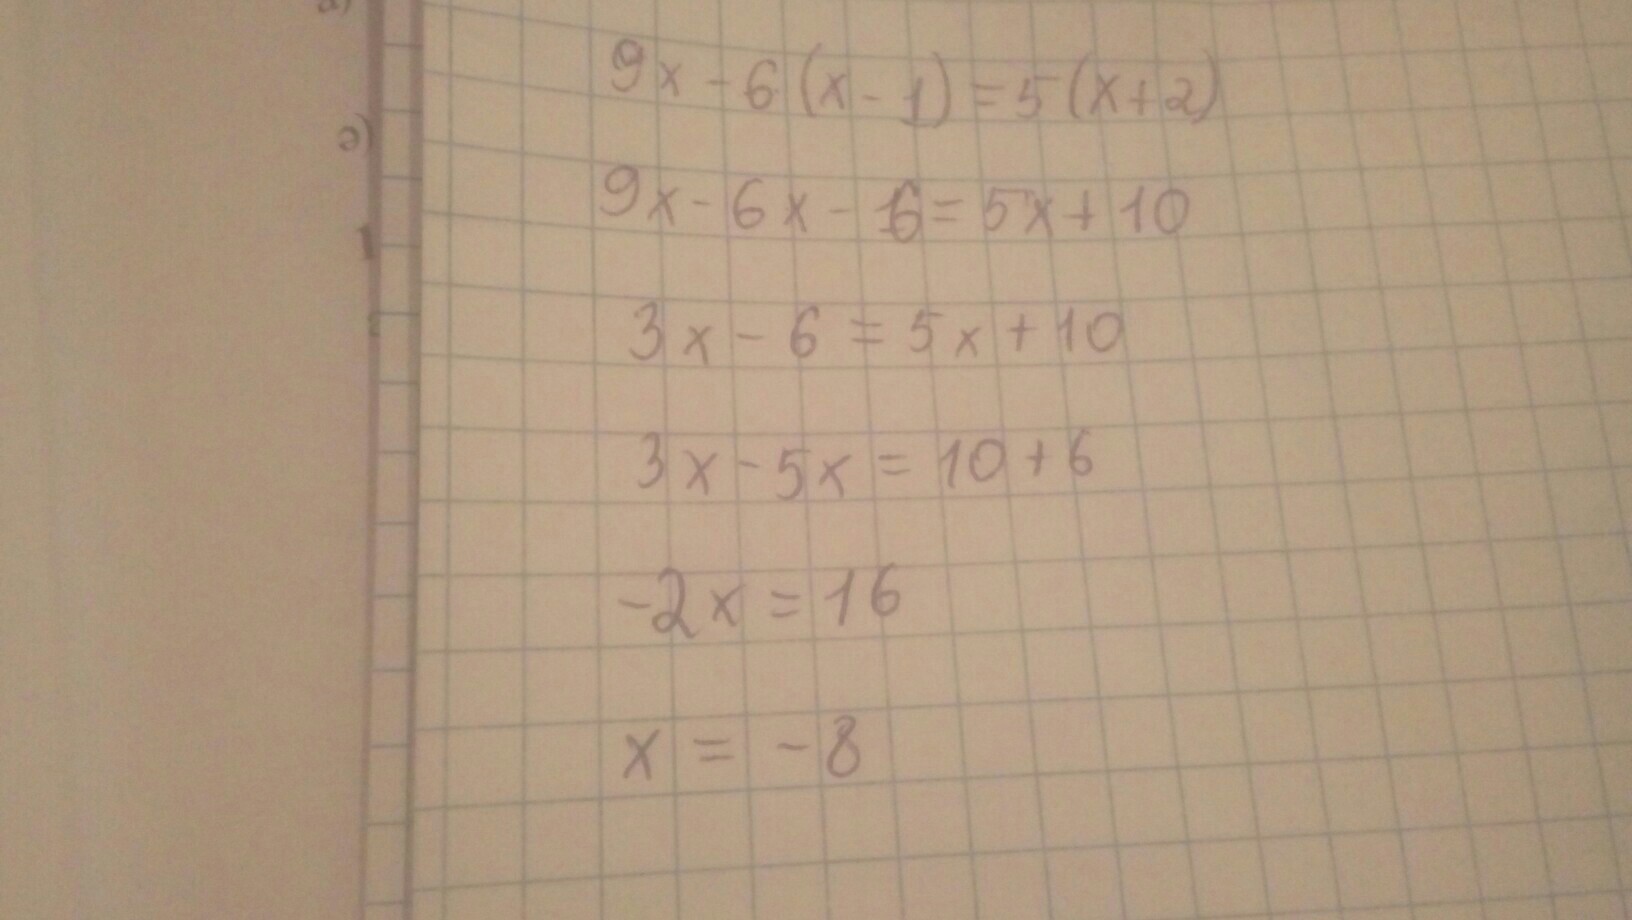 9x - 6(x - 1) = 5(x + 2)
ә)
9x - 6x - 6 = 5x + 10
3x - 6 = 5x + 10
3x - 5x = 10 + 6
-2x = 16
x = -8